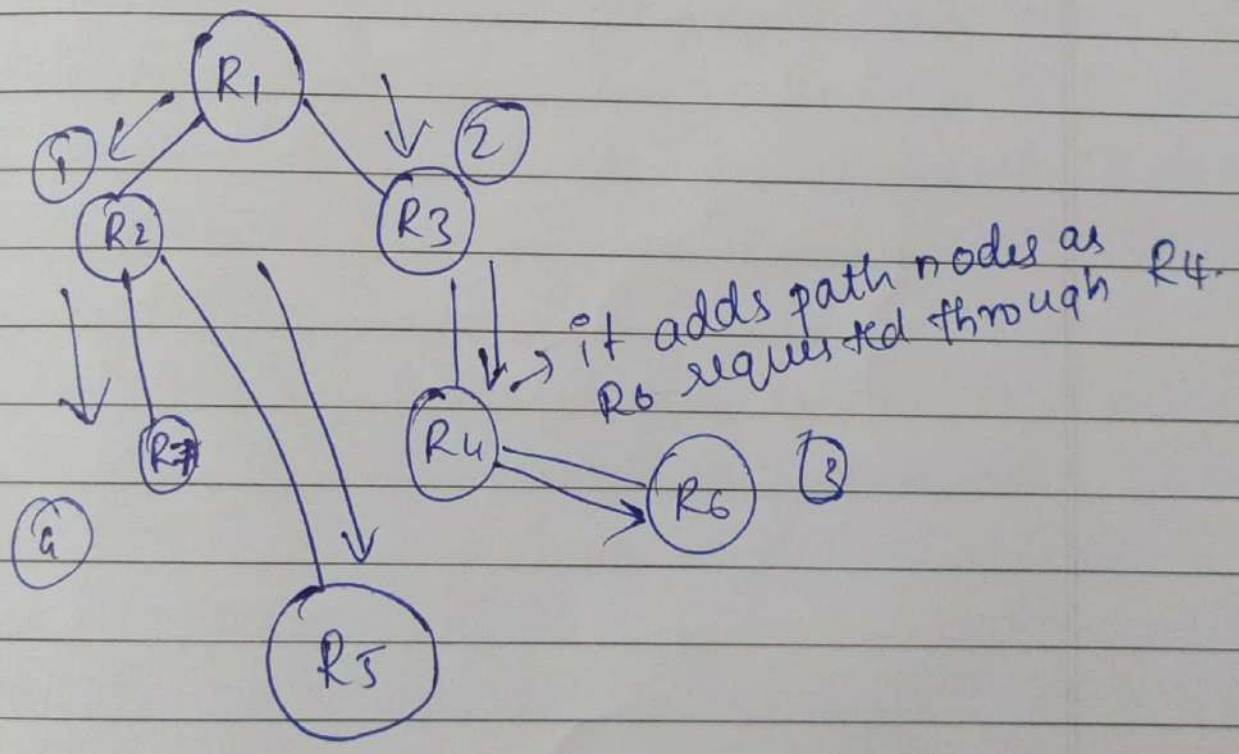 R1
1
2
R2
R3
→ it adds path nodes as
R6 requested through R4.
R7
R4
R6
3
R5